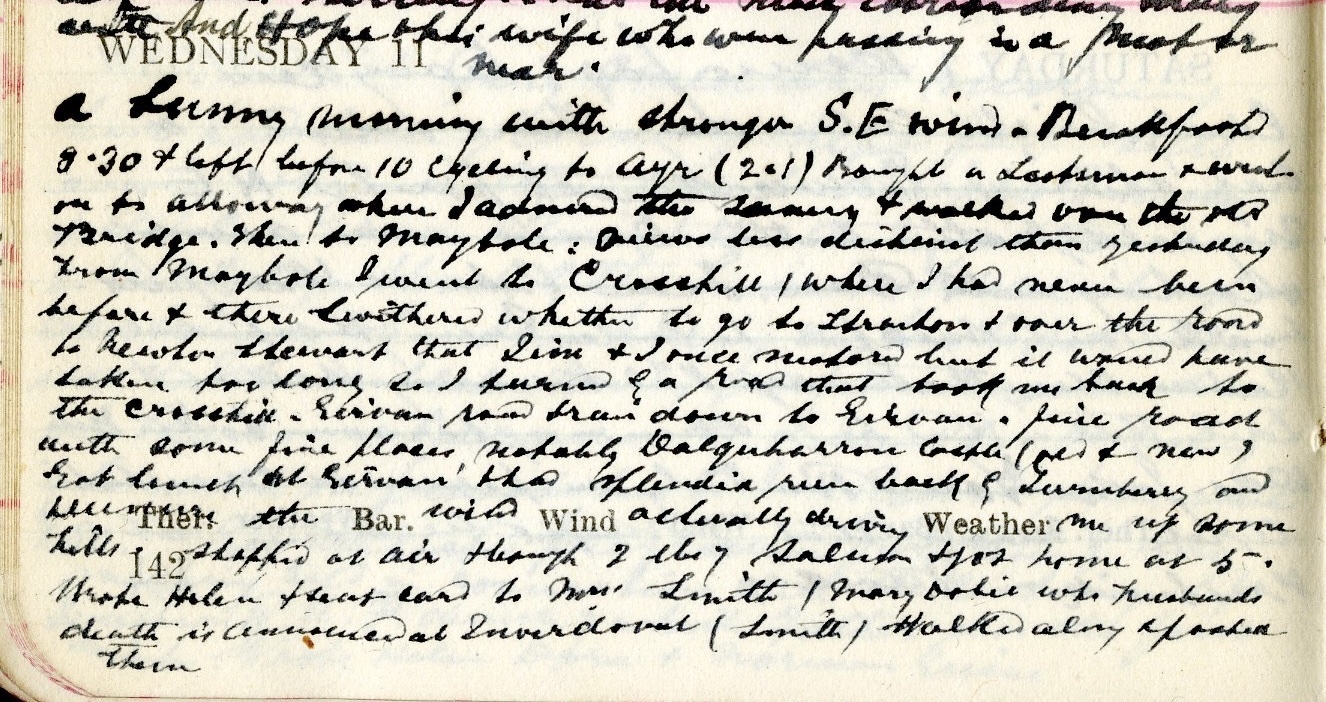 And Hope & his wife who were passing in a Motor
WEDNESDAY 11
near.
A Sunny morning with stronger S.E wind. Breakfast
8.30 & left before 10 Cycling to Ayr (2.1) Bought a Scotsman & went
on to Alloway where I admired the scenery & walked over the old
Bridge. Then to Maybole: views less distinct than yesterday
From Maybole I went to Crosshill (where I had never been
before & there swithered whether to go to Straiton & over the road
to Newton Stewart that Jim & I once motored but it would have
taken too long so I turned by a road that took me back to
the Crosshill. Girvan road & ran down to Girvan. fine road
with some fine places, notably Dalquharron Castle (old & new)
Got lunch at Girvan & had splendid run back by Turnberry and
Ther. the Bar. wind Wind actually driving Weather me up some
hills. Stopped at Air & bought 2 lbs of Salmon & got home at 5.
142
Wrote Helen & sent card to Mrs Smith (Mary Dobie who husbands
death is announced at Inverdovat (Smith) Walked along & posted
them